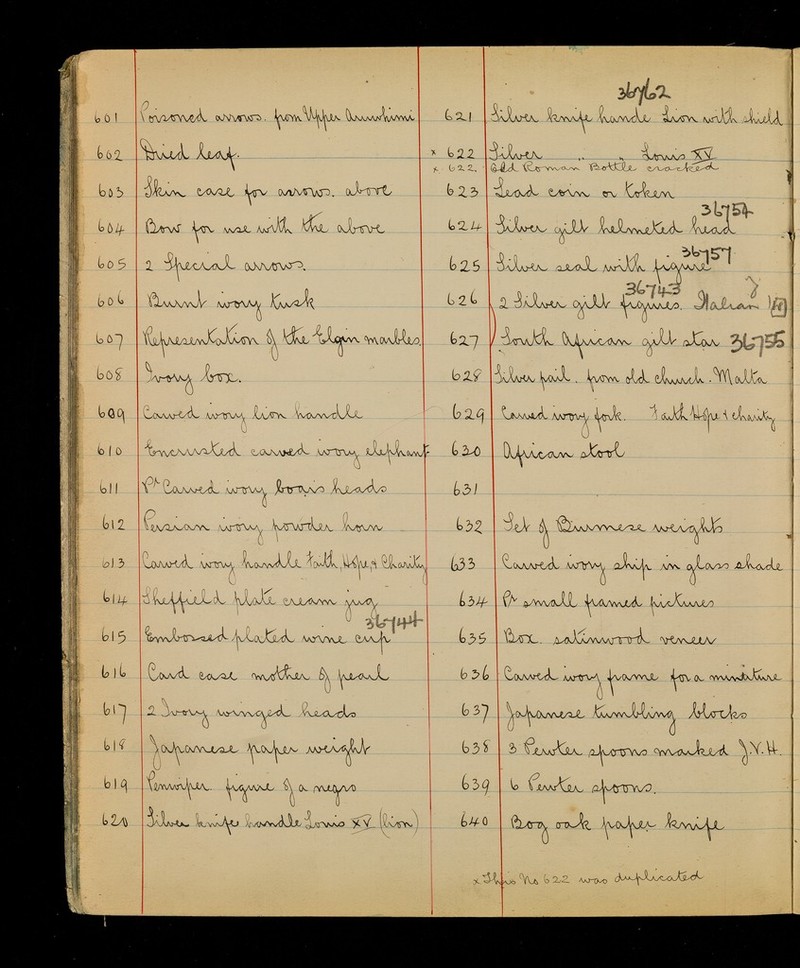 601 Poisoned arrows. from Upper Aruwhimi
602 Dried leaf.
603 Skin case for arrows. above
604 Bow for use with the above
605 2 Special arrows.
606 Burnt ivory tusk
607 Representation of the Elgin marbles.
608 Ivory box.
609 Carved ivory lion handle
610 Encrusted carved ivory elephant
611 Pr Carved ivory boars heads
612 Persian ivory powder horn
613 Carved ivory handle Faith, Hope, & Charity
614 Sheffield plate cream jug
36744
615 Embossed plated wine cup
616 Card case mother of pearl
617 2 Ivory winged heads
618 Japanese paper weight
619 Penwiper figure of a negro
620 Silver knife handle Louis XV (lion)
36762
621 Silver knife handle Lion with shield
x 622 Silver " " Louis XV
x 622. Old Roman Bottle cracked
623 Lead coin or token
36754
624 Silver gilt helmeted head
36757
625 Silver seal with figure
36743
626 2 Silver gilt figures. Italian
627 South African gilt star 36755
628 Silver pail. from old church. Malta
629 Carved ivory fork. Faith Hope & charity
630 African stool
631
632 Set of Burmese weights
633 Carved ivory ship in glass shade
634 Pr small framed pictures
635 Box. satinwood veneer
636 Carved ivory frame for a miniature
637 Japanese tumbling blocks
638 3 Pewter spoons marked J.V.H.
639 6 Pewter spoons.
640 Bog oak paper knife
x This No 622 was duplicated